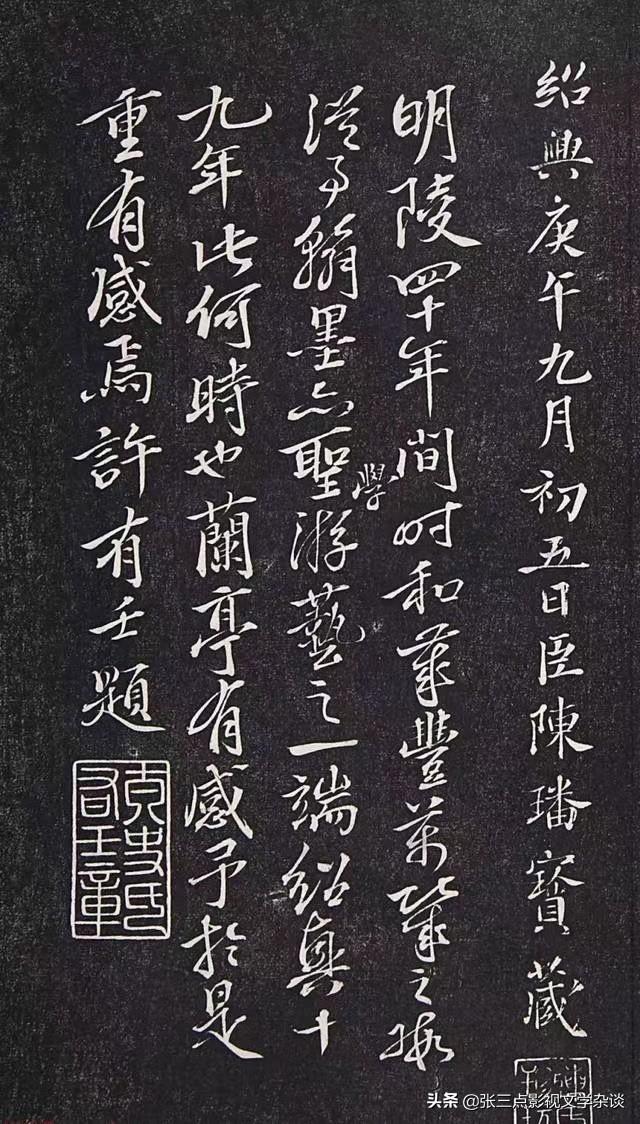 紹興庚午九月初五日臣陳璠寶藏
明陵四十年間時和歲豐萬幾之暇
從事翰墨亦聖學游藝之一端紹興十
九年此何時也蘭亭有感予於是
重有感焉許有壬題
头条 @张三点影视文学杂谈